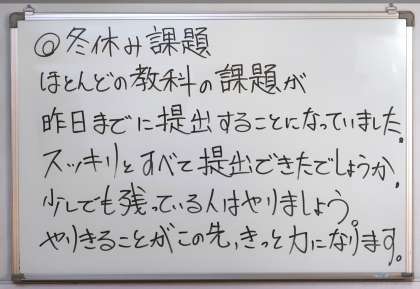 ◎冬休み課題
ほとんどの教科の課題が
昨日までに提出することになっていました。
スッキリとすべて提出できたでしょうか。
少しでも残っている人はやりましょう。
やりきることがこの先、きっと力になります。